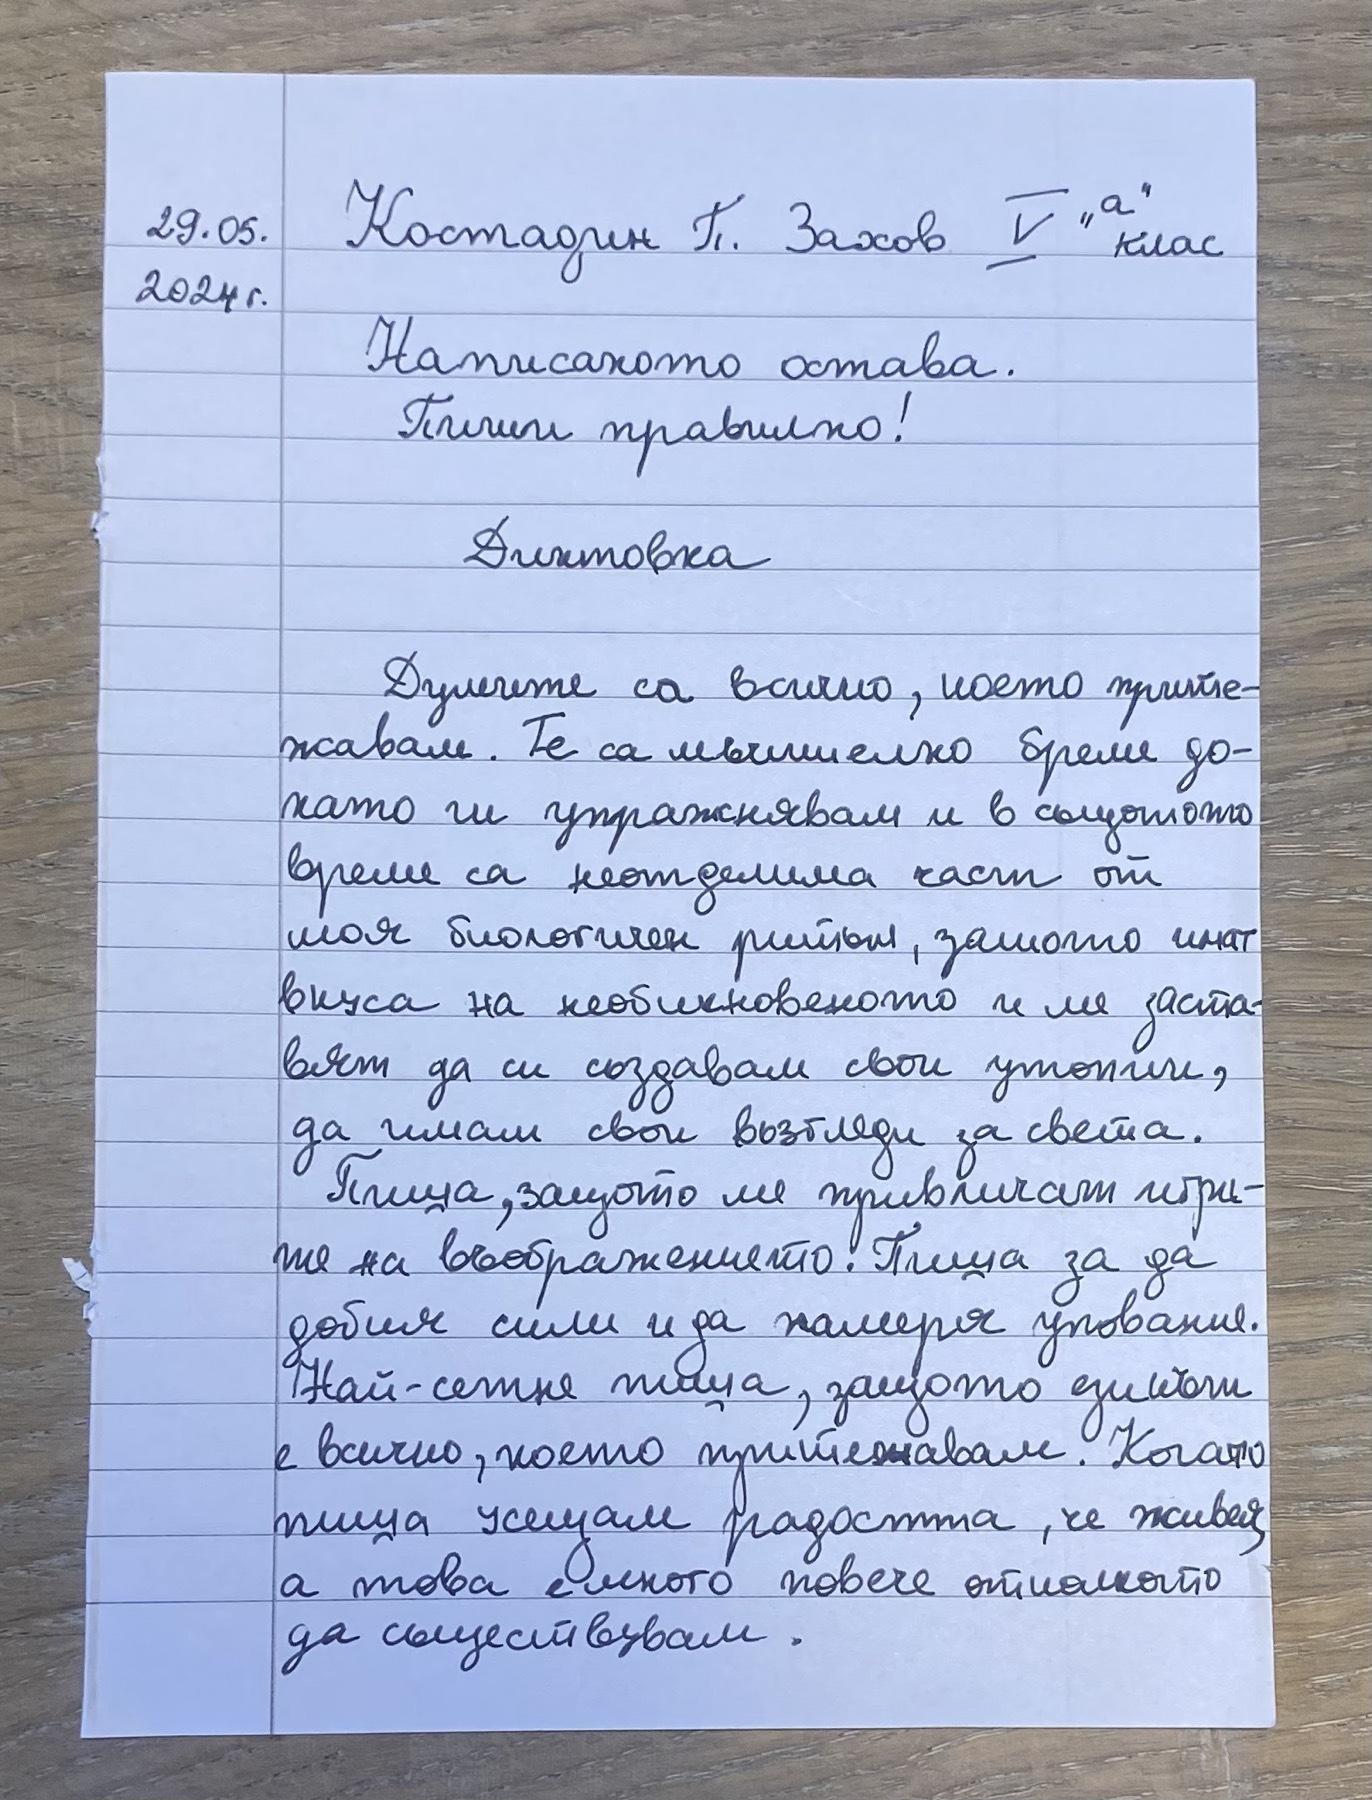 29.05. Костадин П. Захов V "а" клас
2024г.
Написаното остава.
Пиши правилно!
Диктовка
Думите са всичко, което прите-
жавам. Те са мъчително бреме до-
като ги упражнявам и в същотото
време са неотделима част от
моя биологичен ритъм, защото имат
вкуса на необикновеното и ме заста-
вят да си създавам свои утопии,
да имам свои възгледи за света.
Пиша, защото ме привличат игри-
те на въображението. Пиша за да
добия сили и да намеря упование.
Най-сетне пиша, защото езикът
е всичко, което притежавам. Когато
пиша усещам радостта, че живея,
а това е много повече отколкото
да съществувам.